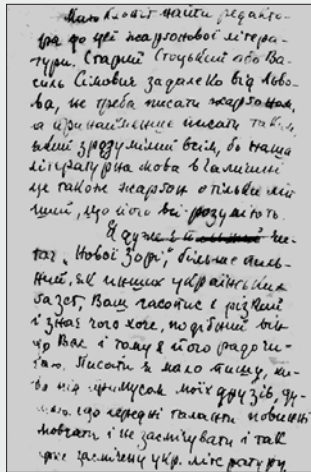 Маю клопіт найти редакто-
ра до цеї жаргонової літера-
тури. Старий Стоцький або Ва-
силь Сімович задалеко від Льво-
ва, не треба писати жаргоном,
а принайменше писати таким,
який зрозумілий всім, бо наша
літературна мова в Галичині
це також жаргон о тільки ліп-
ший, що його всі розуміють.
Я дуже чи-
тач „Нової Зорі", більше пиль-
ний, як инших українських
газет, Ваш часопис є різкий
і знає чого хоче, подібний він
до Вас і тому я його радо чи-
таю. Писати я мало пишу, хи-
ба під примусом моїх друзів, ду-
маю що середні таланти повинні
мовчати і не засмічувати і так
вже засмічену укр. літературу